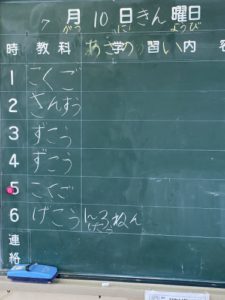 7月10日きん曜日
がつ にち ようび
時 教科 学習内容
あさの い
1 こくご
2 さんすう
3 ずこう
4 ずこう
5 こくご
6 げこう
連絡